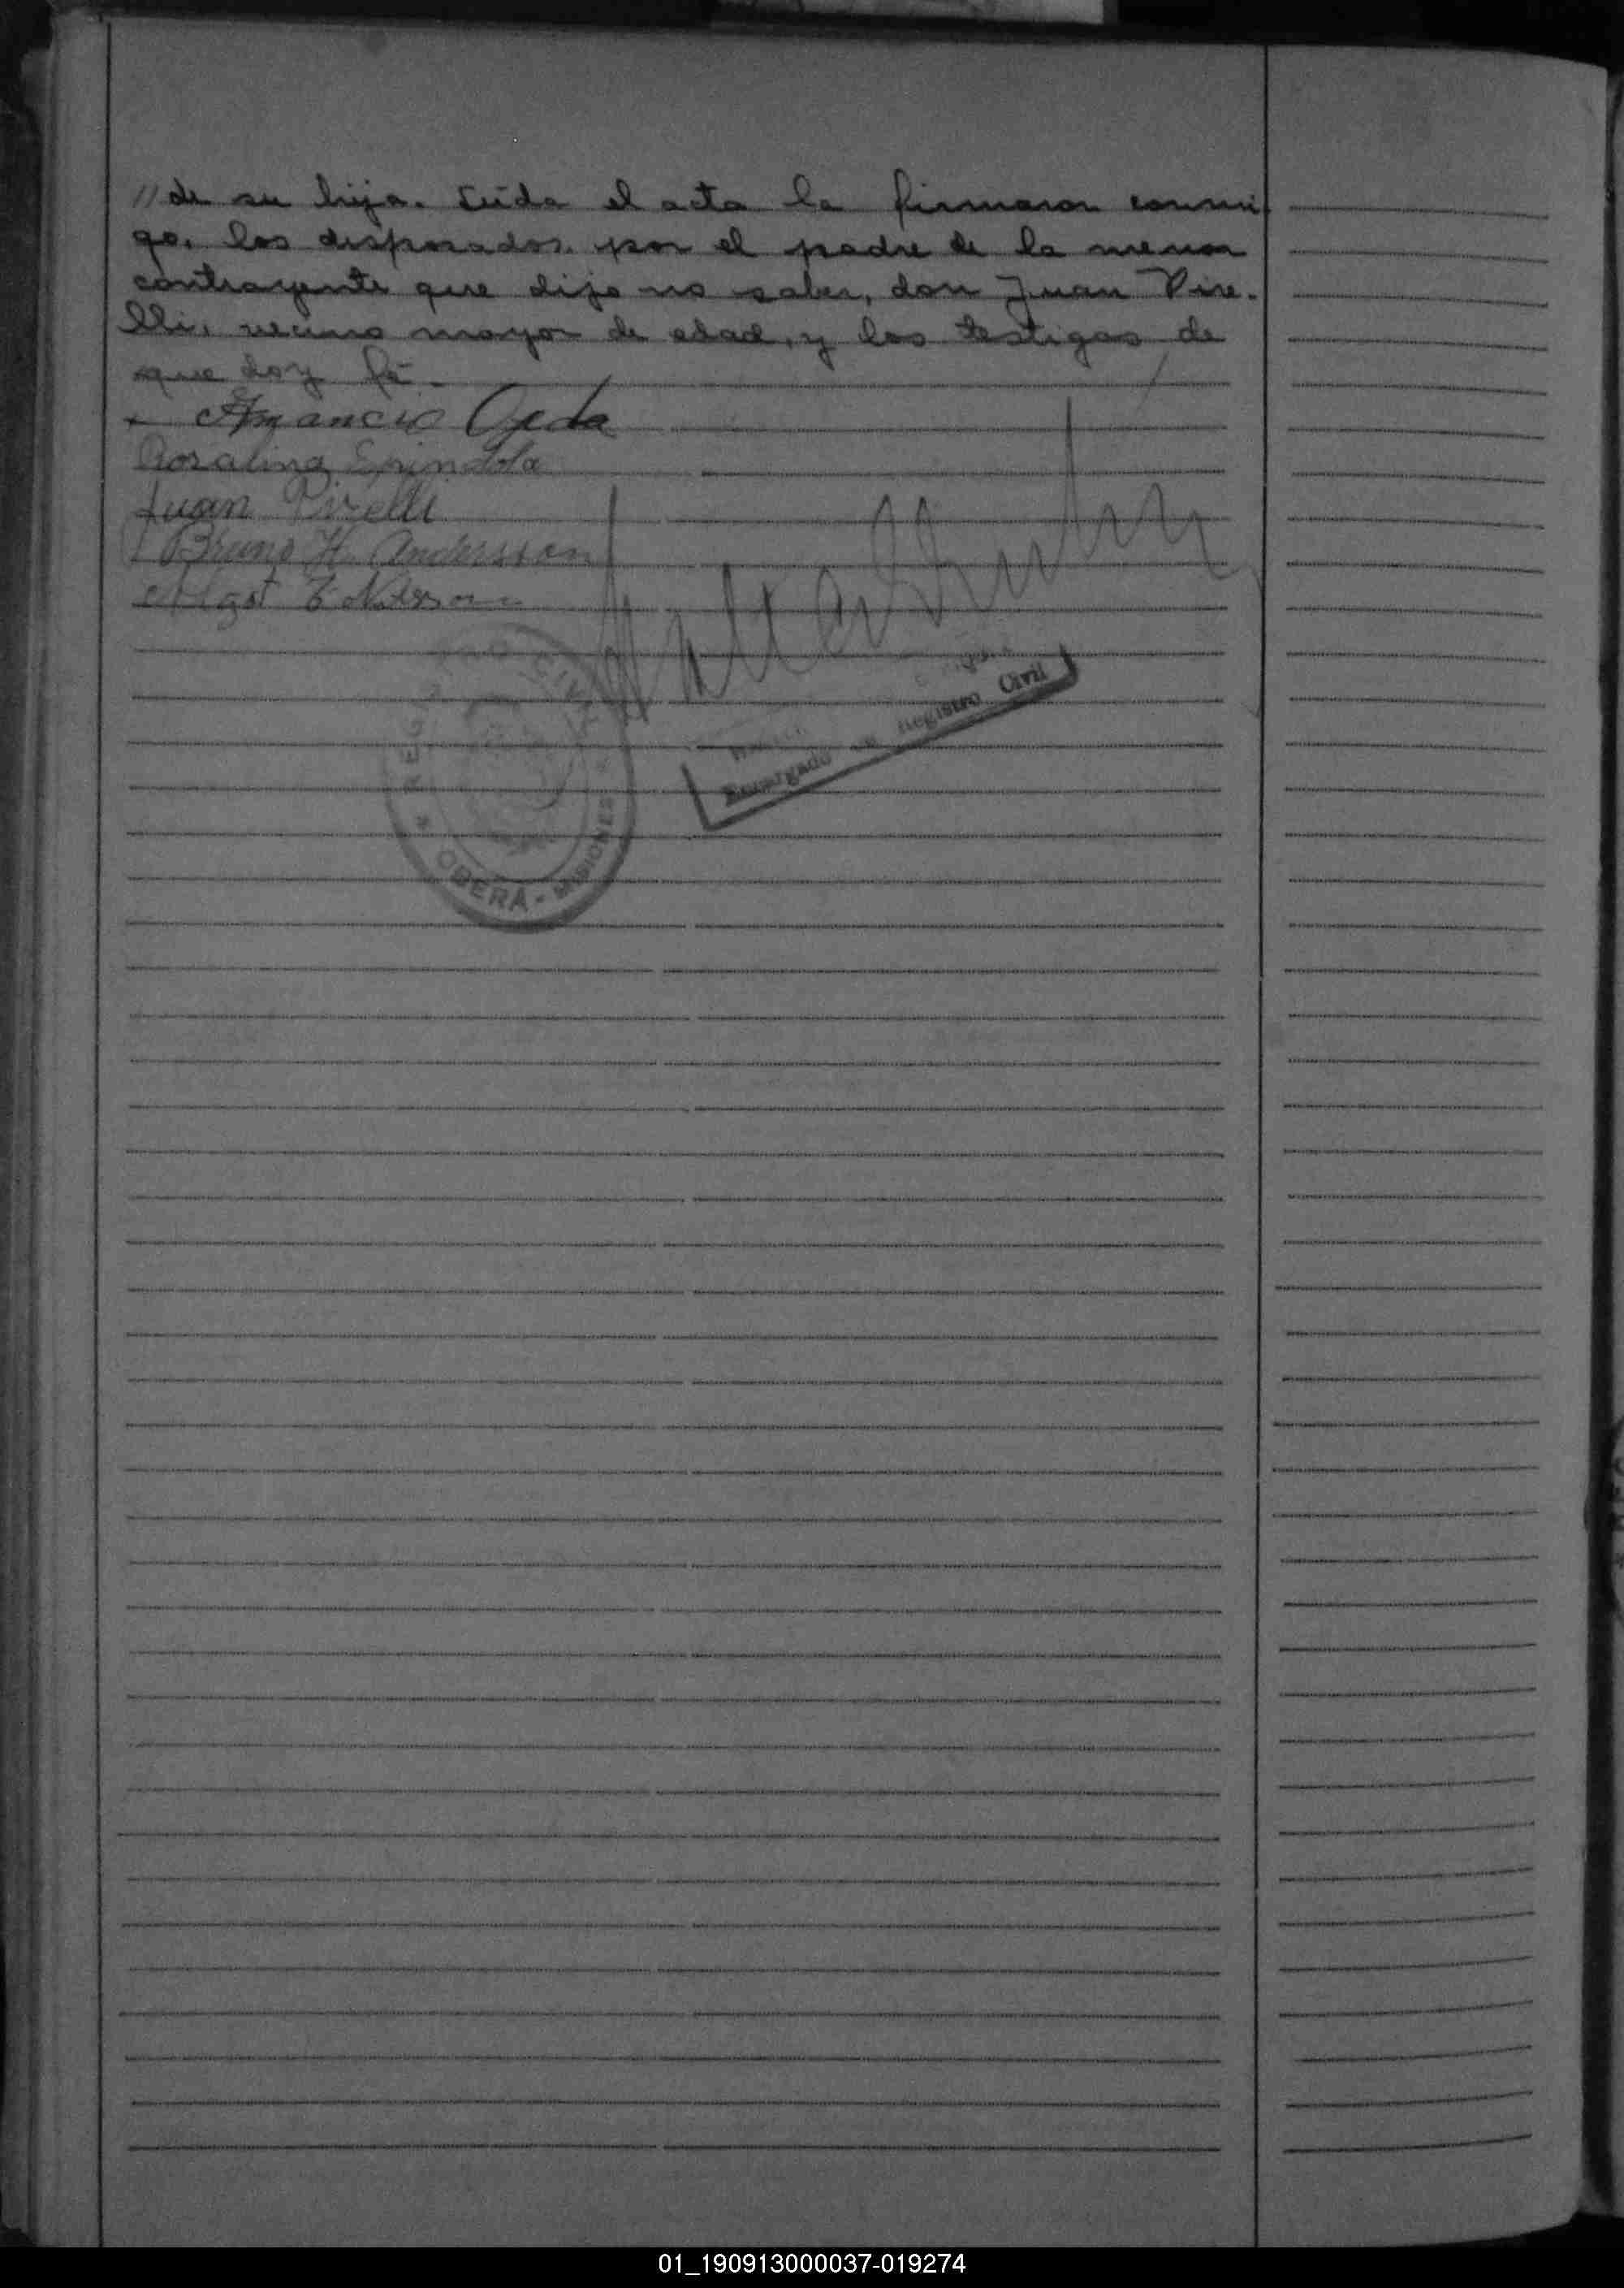 // de su hija. Leída el acta la firmaron conmi-
go, los desposados, por el padre de la menor
contrayente que dijo no saber, don Juan Pire-
lli, vecino mayor de edad, y los testigos de
que doy fé.-
Amancio Ojeda
Rosalina Espindola
Juan Pirelli
Bruno H. Andersson
Algot
REGISTRO CIVIL
OBERÁ - MISIONES
Encargado Registro Civil
01_190913000037-019274